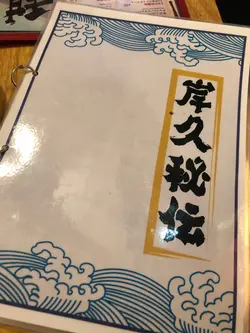 岸久秘伝